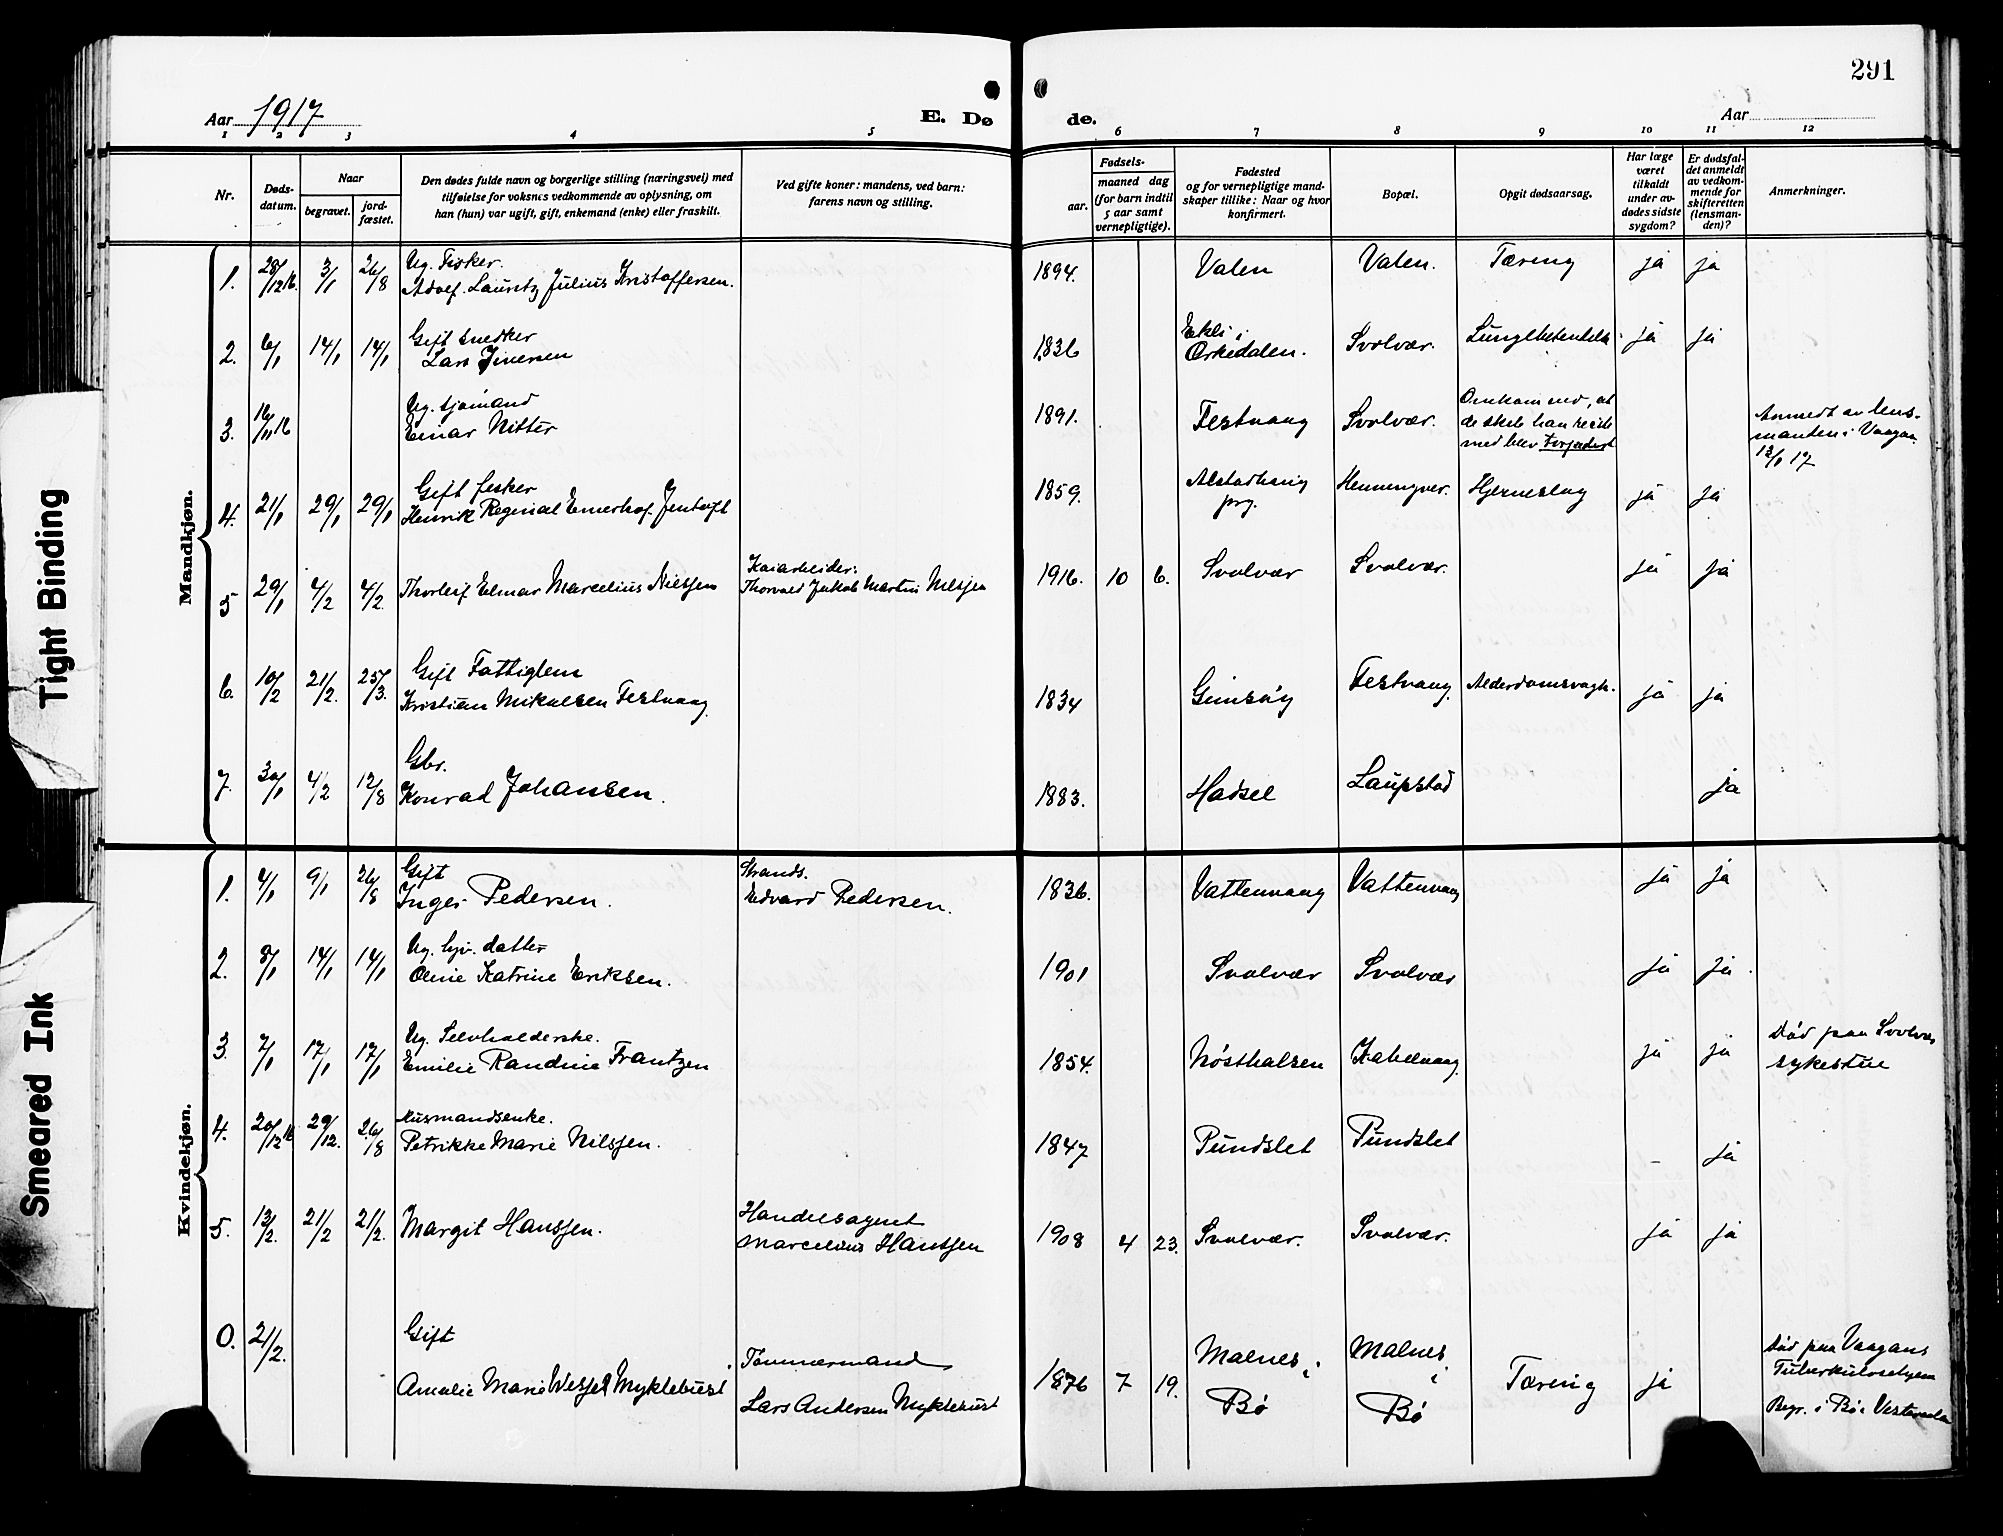 Tight Binding
Smeared Ink
291
Aar 1917
E. Dø
de.
Aar
1 2 3 4 5 6 7 8 9 10 11 12
Nr.
Døds-
datum.
Naar
begravet.
jord-
fæstet.
Den dødes fulde navn og borgerlige stilling (næringsvei) med
tilføielse for voksnes vedkommende av oplysning, om
han (hun) var ugift, gift, enkemand (enke) eller fraskilt.
Ved gifte koner: mandens, ved barn:
farens navn og stilling.
Fødsels-
aar.
maaned dag
(for barn indtil
5 aar samt
vernepligtige).
Fødested
og for vernepligtige mand-
skaper tillike: Naar og hvor
konfirmert.
Bopæl.
Opgit dødsaarsag.
Har læge
været
tilkaldt
under av-
dødes sidste
sygdom?
Er dødsfal-
det anmeldt
av vedkom-
mende for
skifteretten
(lensman-
den)?
Anmerkninger.
Mandkjøn.
Ug. Fisker.
1. 28/12 16. 3/1 26/8 Adolf Lauritz Julius Kristoffersen. 1894. Valen Valen. Tæring ja ja
Gift snedker
2. 6/1 14/1 14/1 Lars Iversen 1836 Ekli i
Orkedalen. Svolvær. Lungebetendelse ja ja
Ug. sjømand
3. 16/11 16 Einar Nitter 1891. Festvaag Svolvær. Omkom ved, at
de skib han reiste
med blev Torpedert
Anmedt av lens-
manden i Vaagan
13/1 17
Gift fisker
4. 21/1 29/1 29/1 Henrik Reginal Jentoft 1859. Alstadhaug
prg. Henningvær. Hjerneslag ja ja
Kaiarbeider:
5 29/1 4/2 4/2. Thorleif Elmar Marcelius Nilssen Thorvald Jakob Martin Nilssen 1916. 10 6. Svolvær Svolvær. ja ja
Gift Fattiglem
6. 10/2 21/2. 25/3. Kristian Mikalsen Festvaag. 1834 Gimsøy Festvaag. Alderdomsvagh. ja ja
Gbr.
7. 30/1 4/2 12/8 Konrad Johansen. 1883. Hadsel Laupstad ja
Kvindekjøn.
Gift
Strands.
1. 4/1 9/1 26/8 Inger Pedersen. Edvard Pedersen. 1836. Vattenvaag Vattenvaag ja ja
Ug. hjv. datter
2. 8/1 14/1 14/1 Oline Katrine Eriksen. 1901 Svolvær Svolvær ja ja
Ug. Selvholderske.
3. 7/1 17/1 17/1 Emilie Randine Frantzen 1854. Nøsthalsen Kabelvaag. ja ja Død paa Svolvær
sykestue
Husmandsenke.
4. 20/12 16 29/12. 26/8 Petrikke Marie Nilssen. 1847 Pundslet Pundslet – ja
5. 13/2. 21/2 21/2. Margit Hanssen. Handelsagent
Marcelius Hanssen 1908 4 23. Svolvær. Svolvær. ja ja
0. 21/2. Gift
Amalie Marie Wessel Myklebust. Tømmermand
Lars Andersen Myklebust 1876 7 19. Malnes i
Bø Malnes i
Bø Tæring ja Død paa Vaagans
Tuberkulosehjem
Begr. i Bø i Vesteraalen